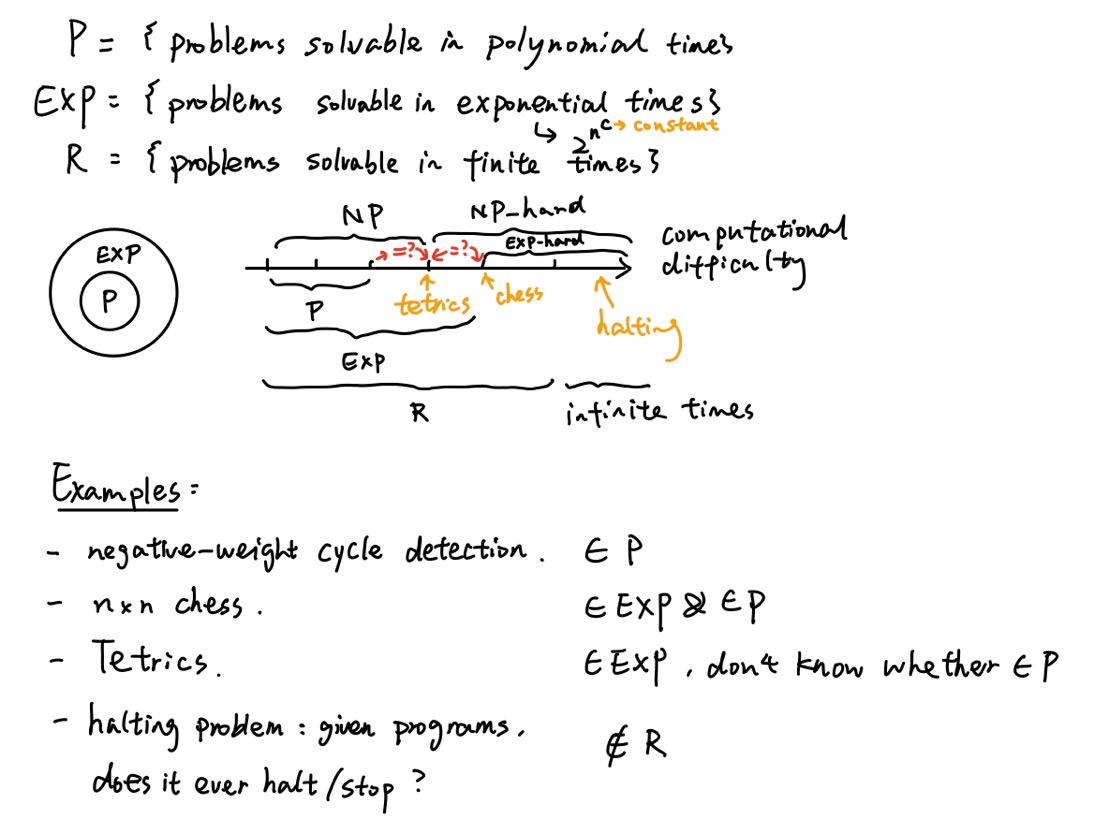 P = { problems solvable in polynomial times
EXP = { problems solvable in exponential times}
↳ 2^n^c → constant
R = { problems solvable in finite times}
NP NP-hard
EXP-hard
=? =?
computational
difficulty
EXP
P
P tetrics chess
halting
EXP
R infinite times
Examples:
- negative-weight cycle detection. ∈ P
- n×n chess. ∈ EXP & ∈ P
- Tetrics. ∈ EXP, don't know whether ∈ P
- halting problem : given programs,
does it ever halt/stop ?
∉ R